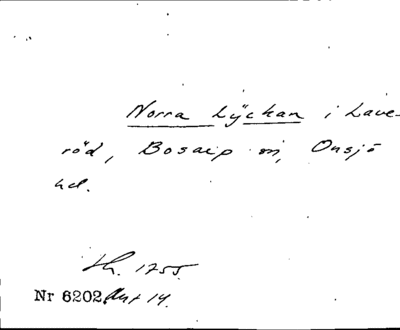 Norra Lyckan i Lave-
röd, Bosarp sn, Onsjö
hd.
Sk. 1755.
Nr 6202. Akt 14.